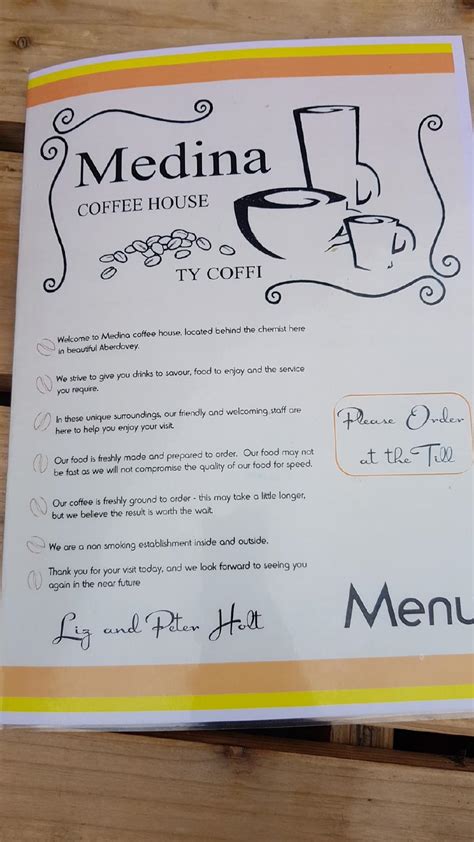 Medina
COFFEE HOUSE
TY COFFI
Welcome to Medina coffee house, located behind the chemist here
in beautiful Aberdovey.
We strive to give you drinks to savour, food to enjoy and the service
you require.
In these unique surroundings, our friendly and welcoming staff are
here to help you enjoy your visit.
Our food is freshly made and prepared to order. Our food may not
be fast as we will not compromise the quality of our food for speed.
Our coffee is freshly ground to order - this may take a little longer,
but we believe the result is worth the wait.
We are a non smoking establishment inside and outside.
Thank you for your visit today, and we look forward to seeing you
again in the near future
Please Order
at the Till
Liz and Peter Holt
Menu